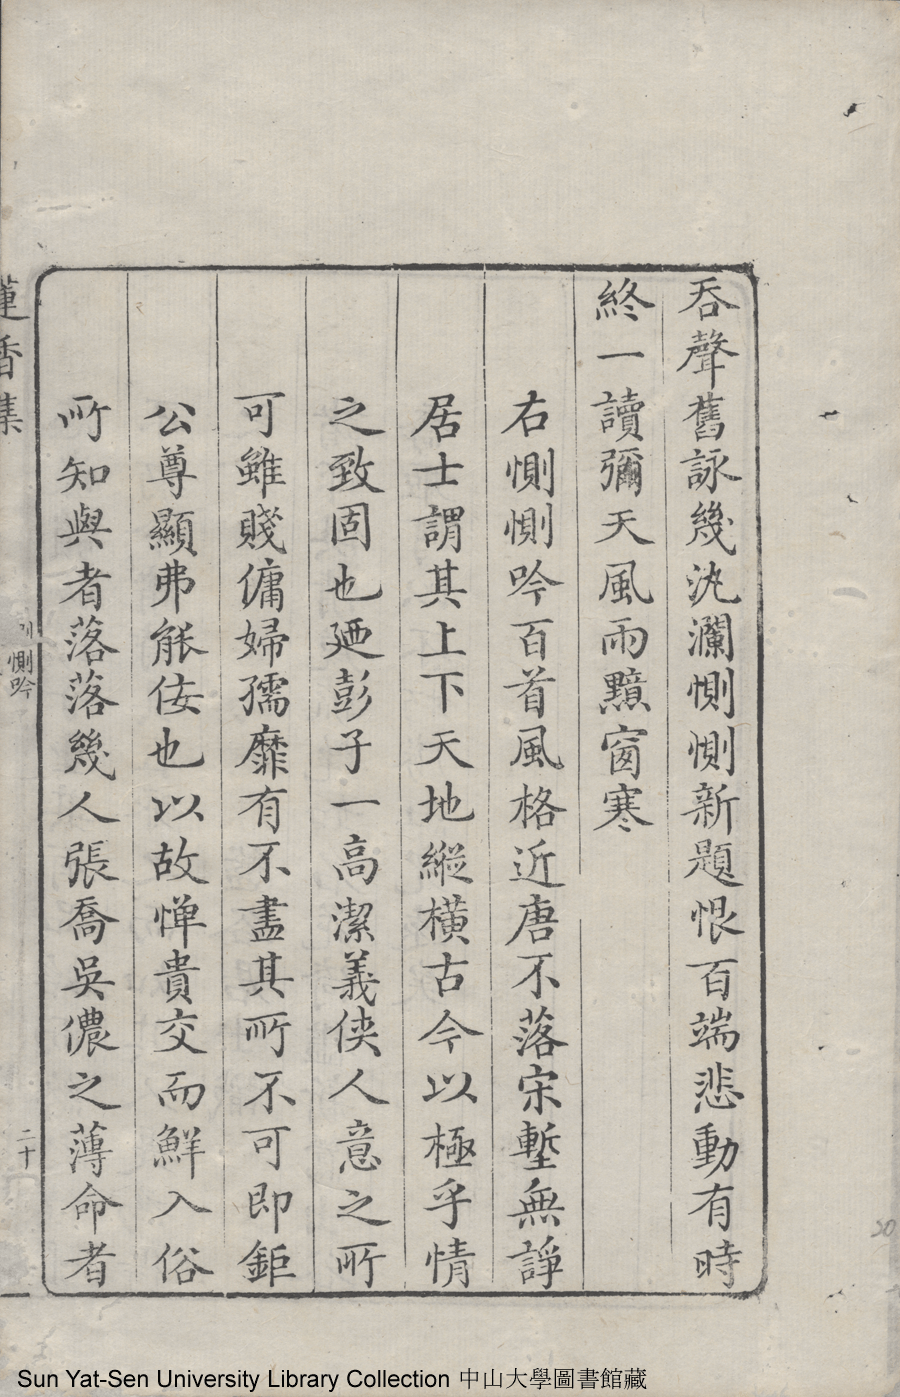 吞聲舊詠幾汍瀾惻惻新題恨百端悲動有時
終一讀彌天風雨黯窗寒
右惻惻吟百首風格近唐不落宋塹無諍
居士謂其上下天地縱橫古今以極乎情
之致固也廼彭子一高潔義俠人意之所
可雖賤傭婦孺靡有不盡其所不可即鉅
公尊顯弗能佞也以故憚貴交而鮮入俗
所知與者落落幾人張喬吳儂之薄命者
蓮香集
惻吟
二十
20
Sun Yat-Sen University Library Collection 中山大學圖書館藏